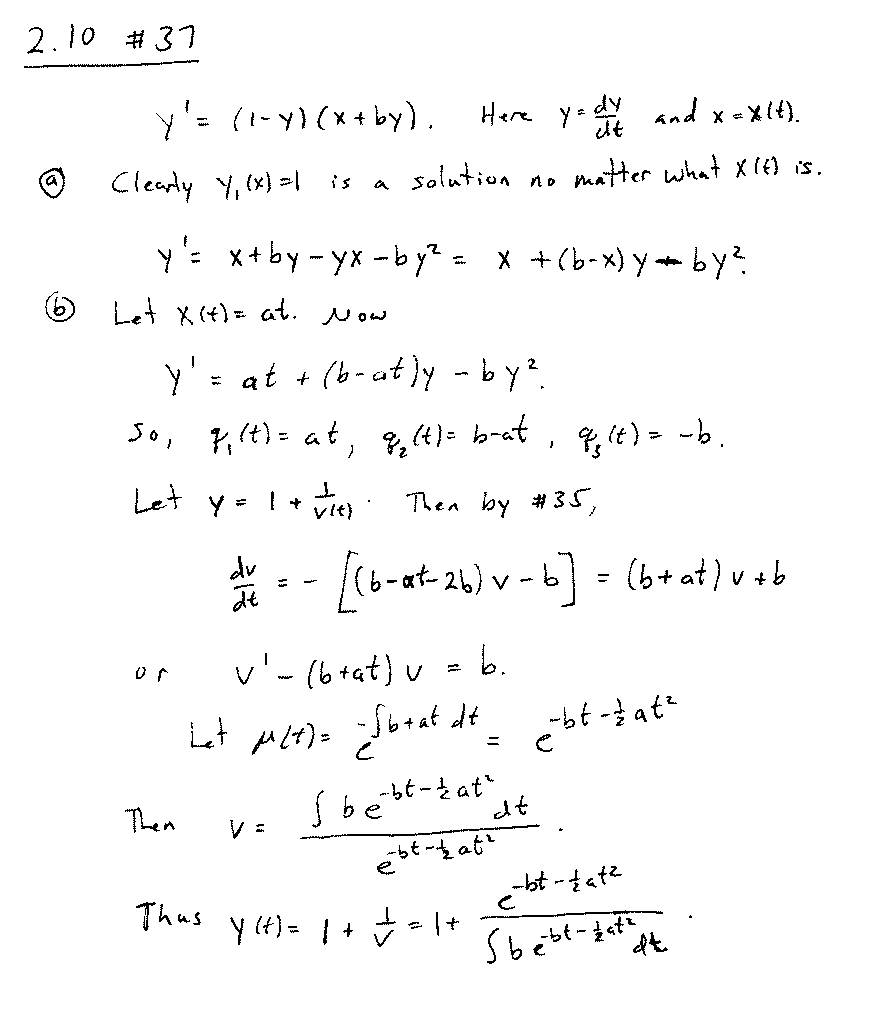 2.10 #37
y' = (1-y)(x+by). Here y = dy/dt and x = x(t).
(a) Clearly y₁(x)=1 is a solution no matter what x(t) is.
y' = x+by-yx-by² = x+(b-x)y-by².
(b) Let x(t)=at. Now
y' = at+(b-at)y-by².
So, q₁(t)=at, q₂(t)=b-at, q₃(t)=-b.
Let y = 1 + 1/v(t). Then by #35,
dv/dt = -[(b-at-2b)v-b] = (b+at)v+b
or v'-(b+at)v = b.
Let μ(t) = e^(-∫b+at dt) = e^(-bt-½at²)
Then v = ∫be^(-bt-½at²)dt / e^(-bt-½at²).
Thus y(t) = 1+1/v = 1+ e^(-bt-½at²) / ∫be^(-bt-½at²)dt.